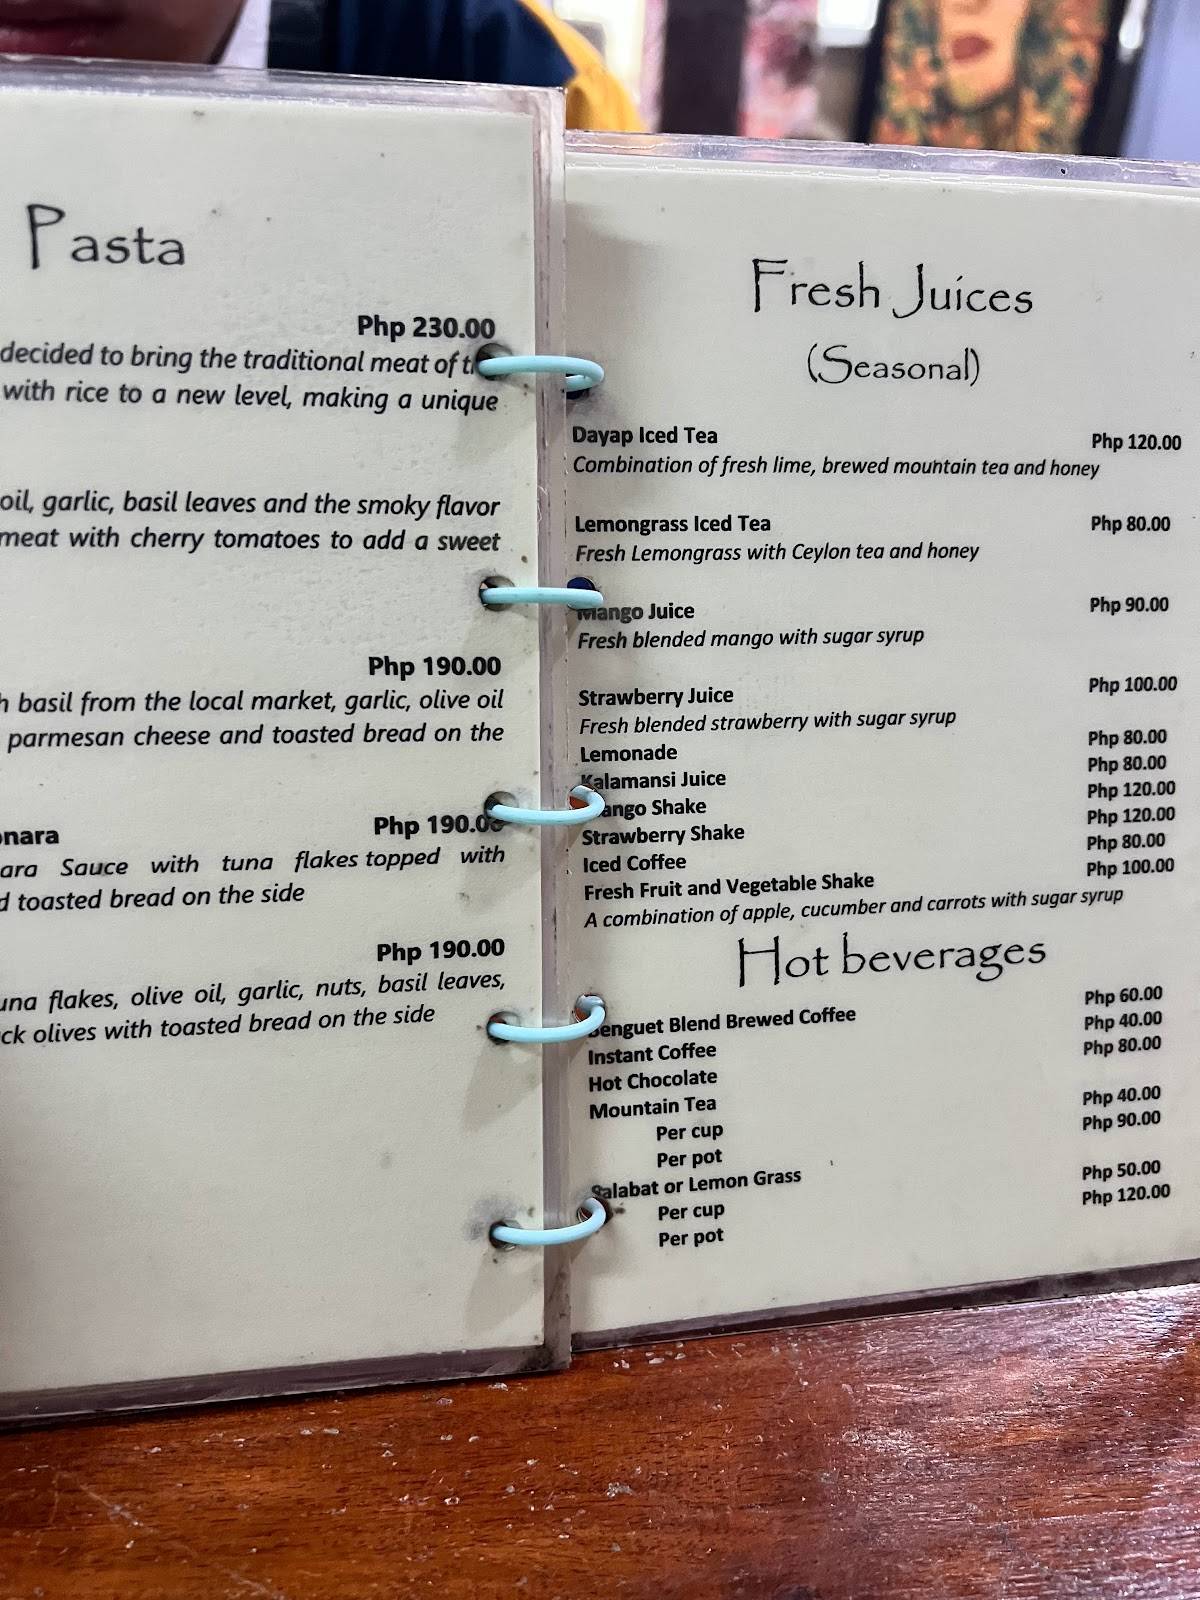 Pasta
Php 230.00
decided to bring the traditional meat of
with rice to a new level, making a unique
oil, garlic, basil leaves and the smoky flavor
meat with cherry tomatoes to add a sweet
Php 190.00
basil from the local market, garlic, olive oil
parmesan cheese and toasted bread on the
Php 190.00
Sauce with tuna flakes topped with
toasted bread on the side
Php 190.00
flakes, olive oil, garlic, nuts, basil leaves,
olives with toasted bread on the side
Fresh Juices
(Seasonal)
Dayap Iced Tea Php 120.00
Combination of fresh lime, brewed mountain tea and honey
Lemongrass Iced Tea Php 80.00
Fresh Lemongrass with Ceylon tea and honey
Mango Juice Php 90.00
Fresh blended mango with sugar syrup
Strawberry Juice Php 100.00
Fresh blended strawberry with sugar syrup
Lemonade Php 80.00
Kalamansi Juice Php 80.00
Mango Shake Php 120.00
Strawberry Shake Php 120.00
Iced Coffee Php 80.00
Fresh Fruit and Vegetable Shake Php 100.00
A combination of apple, cucumber and carrots with sugar syrup
Hot beverages
Benguet Blend Brewed Coffee Php 60.00
Instant Coffee Php 40.00
Hot Chocolate Php 80.00
Mountain Tea
Per cup Php 40.00
Per pot Php 90.00
Salabat or Lemon Grass
Per cup Php 50.00
Per pot Php 120.00